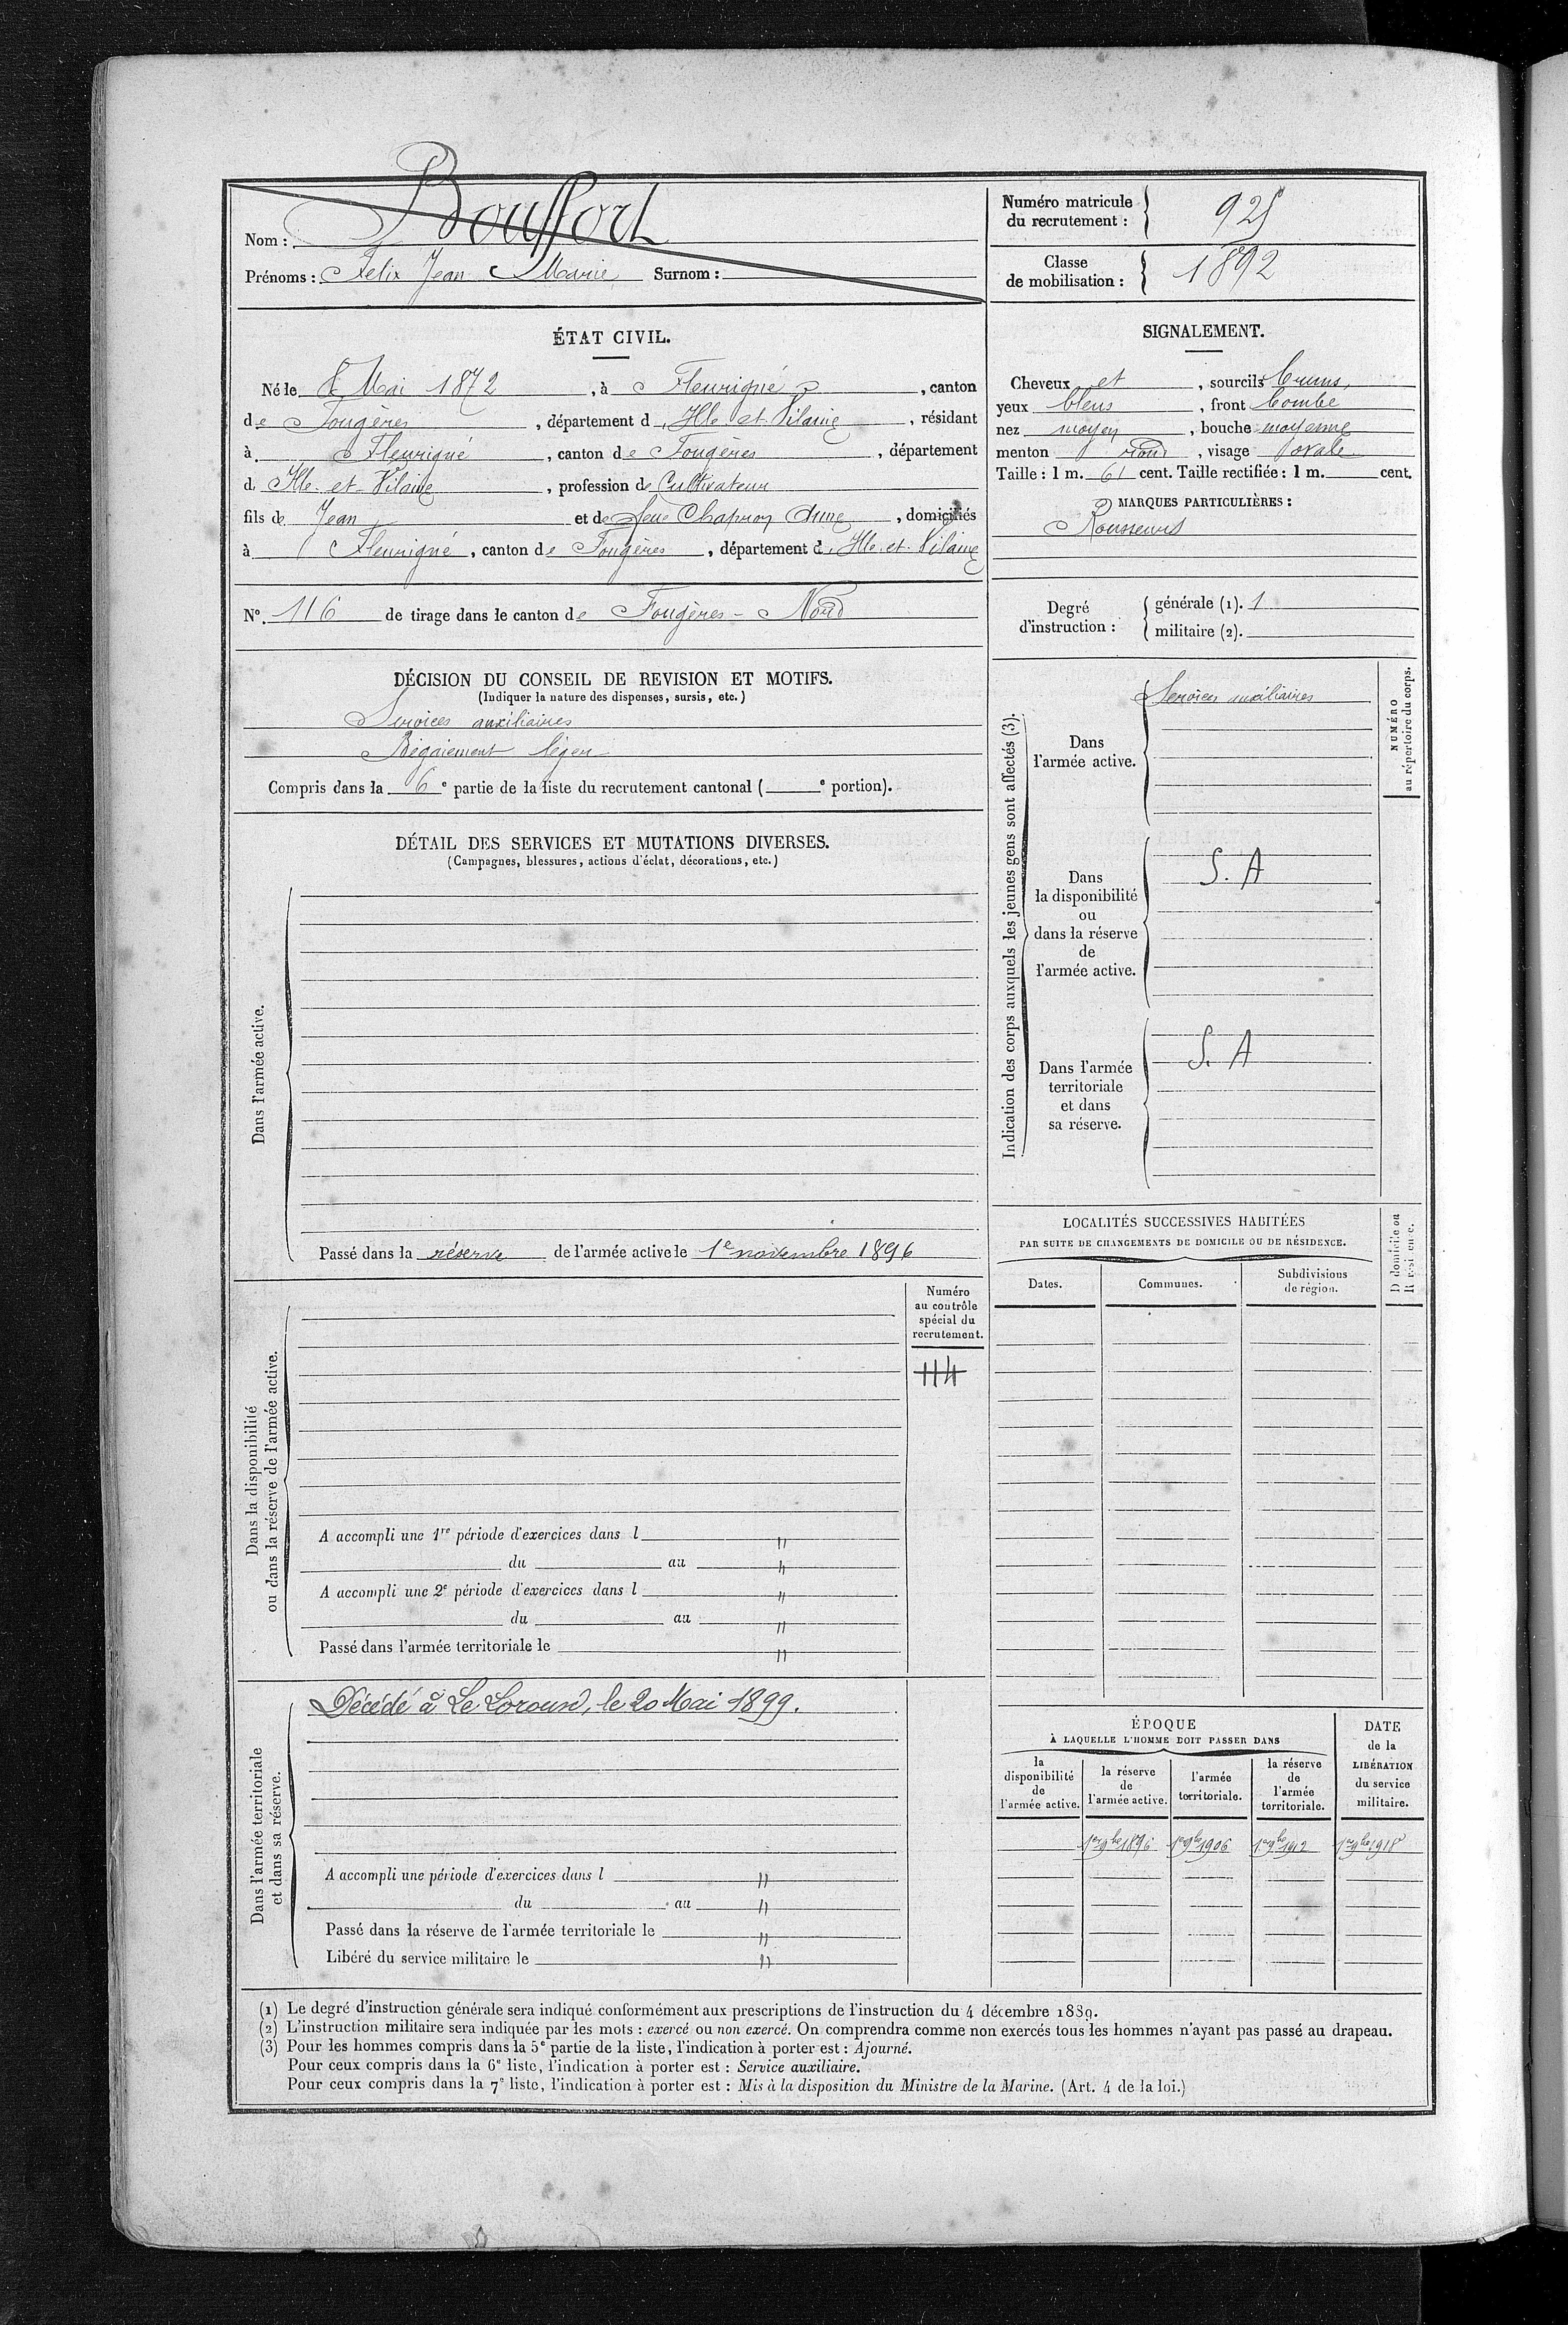 Nom : Bouffort
Prénoms : Felix Jean Marie Surnom :
Numéro matricule
du recrutement : 925
Classe
de mobilisation : 1892
ÉTAT CIVIL.
Né le 8 Mai 1872, à Fleurigné, canton
de Fougères, département d'Ille-et-Vilaine, résidant
à Fleurigné, canton de Fougères, département
d'Ille-et-Vilaine, profession de Cultivateur
fils de Jean et de feue Chapron Anne, domiciliés
à Fleurigné, canton de Fougères, département d'Ille-et-Vilaine
N° 116 de tirage dans le canton de Fougères-Nord
SIGNALEMENT.
Cheveux et, sourcils bruns,
yeux bleus, front bombé
nez moyen, bouche moyenne
menton rond, visage ovale
Taille : 1 m. 61 cent. Taille rectifiée : 1 m. cent.
MARQUES PARTICULIÈRES :
Rousseurs
Degré
d'instruction :
générale (1). 1
militaire (2).
DÉCISION DU CONSEIL DE REVISION ET MOTIFS.
(Indiquer la nature des dispenses, sursis, etc.)
Services auxiliaires
Bégaiement léger
Compris dans la 6e partie de la liste du recrutement cantonal ( e portion).
DÉTAIL DES SERVICES ET MUTATIONS DIVERSES.
(Campagnes, blessures, actions d'éclat, décorations, etc.)
Dans l'armée active.
Passé dans la réserve de l'armée active le 1e novembre 1896
Indication des corps auxquels les jeunes gens sont affectés (3).
Dans
l'armée active.
Services auxiliaires
Dans
la disponibilité
ou
dans la réserve
de
l'armée active.
S. A
Dans l'armée
territoriale
et dans
sa réserve.
S. A
NUMÉRO
au répertoire du corps.
LOCALITÉS SUCCESSIVES HABITÉES
PAR SUITE DE CHANGEMENTS DE DOMICILE OU DE RÉSIDENCE.
Dates.
Communes.
Subdivisions
de région.
D domicile ou
R résidence.
Dans la disponibilité
ou dans la réserve de l'armée active.
Numéro
au contrôle
spécial du
recrutement.
114
A accompli une 1re période d'exercices dans l "
du au "
A accompli une 2e période d'exercices dans l "
du au "
Passé dans l'armée territoriale le "
Dans l'armée territoriale
et dans sa réserve.
Décédé à Le Loroux, le 20 Mai 1899.
A accompli une période d'exercices dans l "
du au "
Passé dans la réserve de l'armée territoriale le "
Libéré du service militaire le "
ÉPOQUE
À LAQUELLE L'HOMME DOIT PASSER DANS
la
disponibilité
de
l'armée active.
la réserve
de
l'armée active.
l'armée
territoriale.
la réserve
de
l'armée
territoriale.
DATE
de la
LIBÉRATION
du service
militaire.
1er 9bre 1896 1er 9bre 1906 1er 9bre 1912 1er 9bre 1918
(1) Le degré d'instruction générale sera indiqué conformément aux prescriptions de l'instruction du 4 décembre 1889.
(2) L'instruction militaire sera indiquée par les mots : exercé ou non exercé. On comprendra comme non exercés tous les hommes n'ayant pas passé au drapeau.
(3) Pour les hommes compris dans la 5e partie de la liste, l'indication à porter est : Ajourné.
Pour ceux compris dans la 6e liste, l'indication à porter est : Service auxiliaire.
Pour ceux compris dans la 7e liste, l'indication à porter est : Mis à la disposition du Ministre de la Marine. (Art. 4 de la loi.)